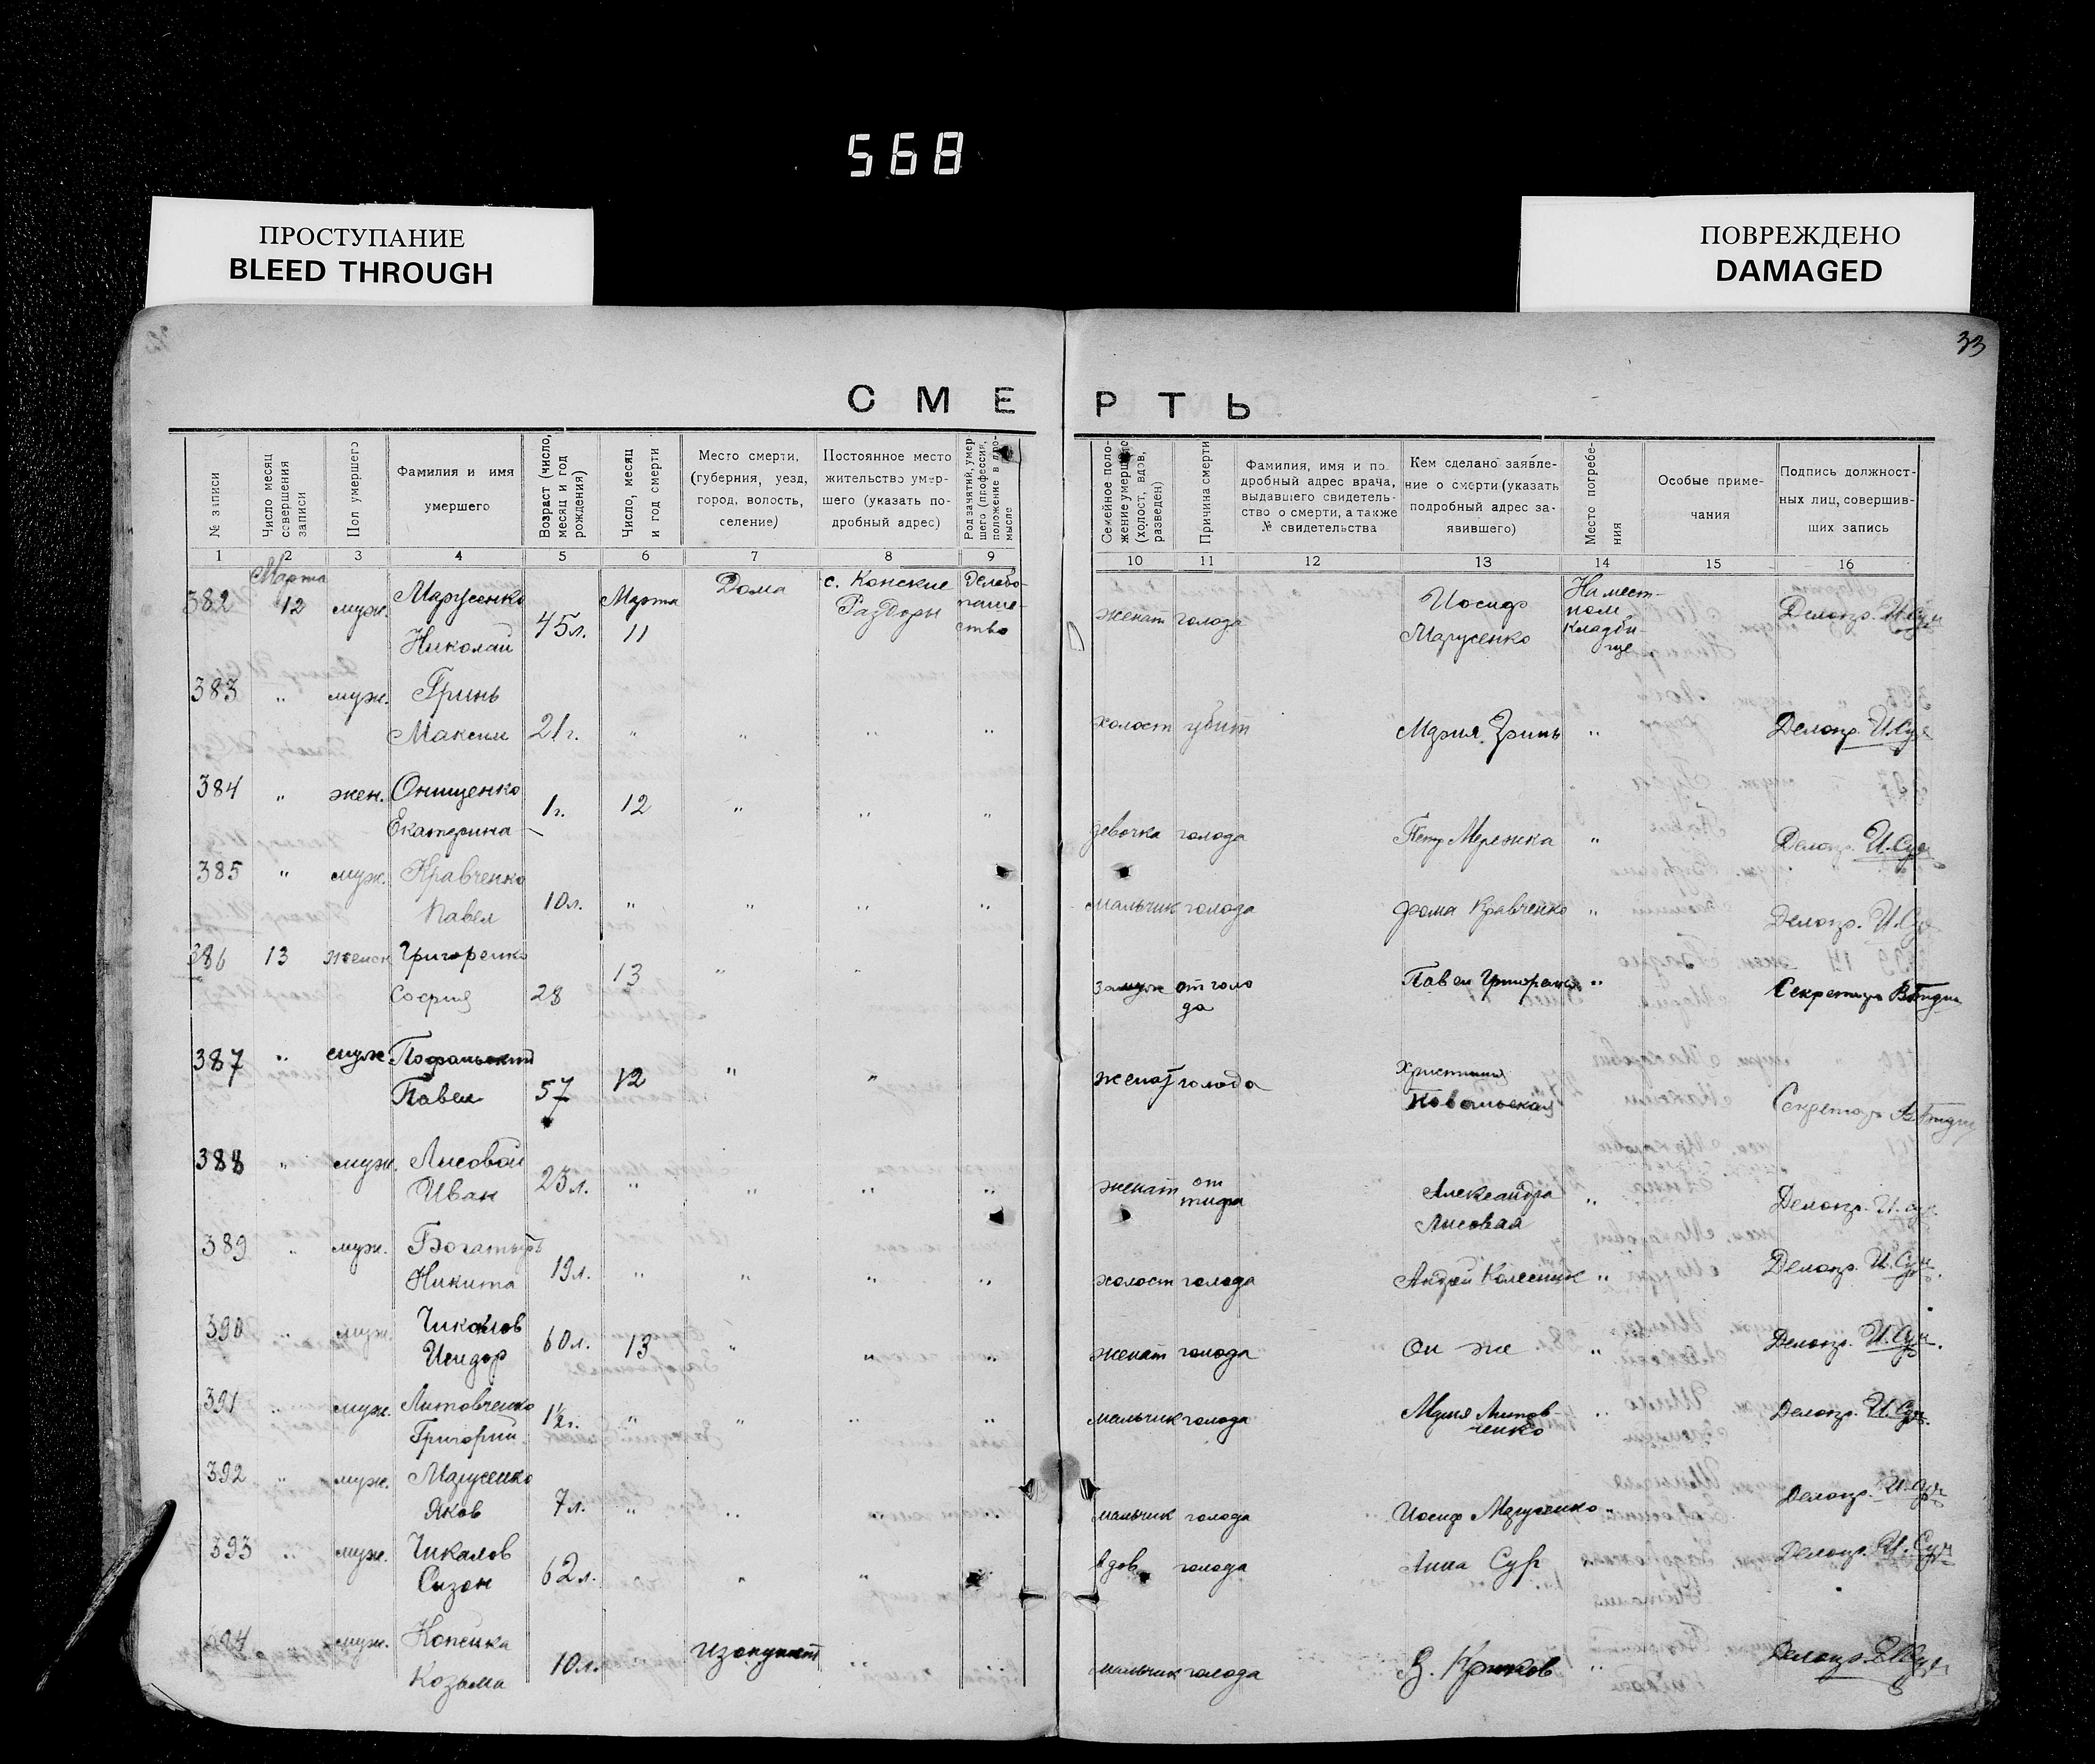 568
ПРОСТУПАНИЕ
BLEED THROUGH
ПОВРЕЖДЕНО
DAMAGED
33
СМЕРТЬ
№ записи
Число месяц совершения записи
Пол умершего
Фамилия и имя умершего
Возраст (число, месяц и год рождения)
Число, месяц и год смерти
Место смерти, (губерния, уезд, город, волость, селение)
Постоянное место жительство умершего (указать подробный адрес)
Род занятий умершего (профессия, положение в промысле
Семейное положение умершего (холост, вдов, разведен)
Причина смерти
Фамилия, имя и подробный адрес врача, выдавшего свидетельство о смерти, а также № свидетельства
Кем сделано заявление о смерти (указать подробный адрес заявившего)
Место погребения
Особые примечания
Подпись должностных лиц, совершивших запись
1 2 3 4 5 6 7 8 9 10 11 12 13 14 15 16
382 Марта 12 муж. Марусенко Николай 45 л. Марта 11 Дома с. Конские Раздоры женат голода Иосиф Марусенко На мест- ном кладби- ще Делопр.
383 " муж. Гринь Максим 21 г. " " " " холост убит Мария Гринь " Делопр.
384 " жен. Онищенко Екатерина 1 г. 12 " " " девочка голода Петр Мережка " Делопр.
385 " муж. Кравченко Павел 10 л. " " " " мальчик голода Фома Кравченко " Делопр.
386 13 женск Григоренко София 28 13 " " замуж от голо да Павел Григоренко " Секретарь
387 " муж Павел 57 12 " " женат голода Христиния Ковальская Секретарь
388 " муж. Лисовой Иван 23 л. " " " " женат от тифа Александра Лисовая " Делопр.
389 " муж. Богатырь Никита 19 л. " " " " холост голода Андрей Колесник " Делопр.
390 " муж. Чикалов Исидор 60 л. 13 " " " женат голода Он же " Делопр.
391 " муж. Литовченко Григорий 1½ г. " " " " мальчик голода Мария Литов- ченко " Делопр.
392 " муж. Марусенко Яков 7 л. " " " мальчик голода Иосиф Марусенко " Делопр.
393 " муж. Чикалов Сизон 62 л. " " " вдов голода Анна Сур " Делопр.
394 муж. Копейка Козьма 10 л. " мальчик голода Крюков " Делопр.